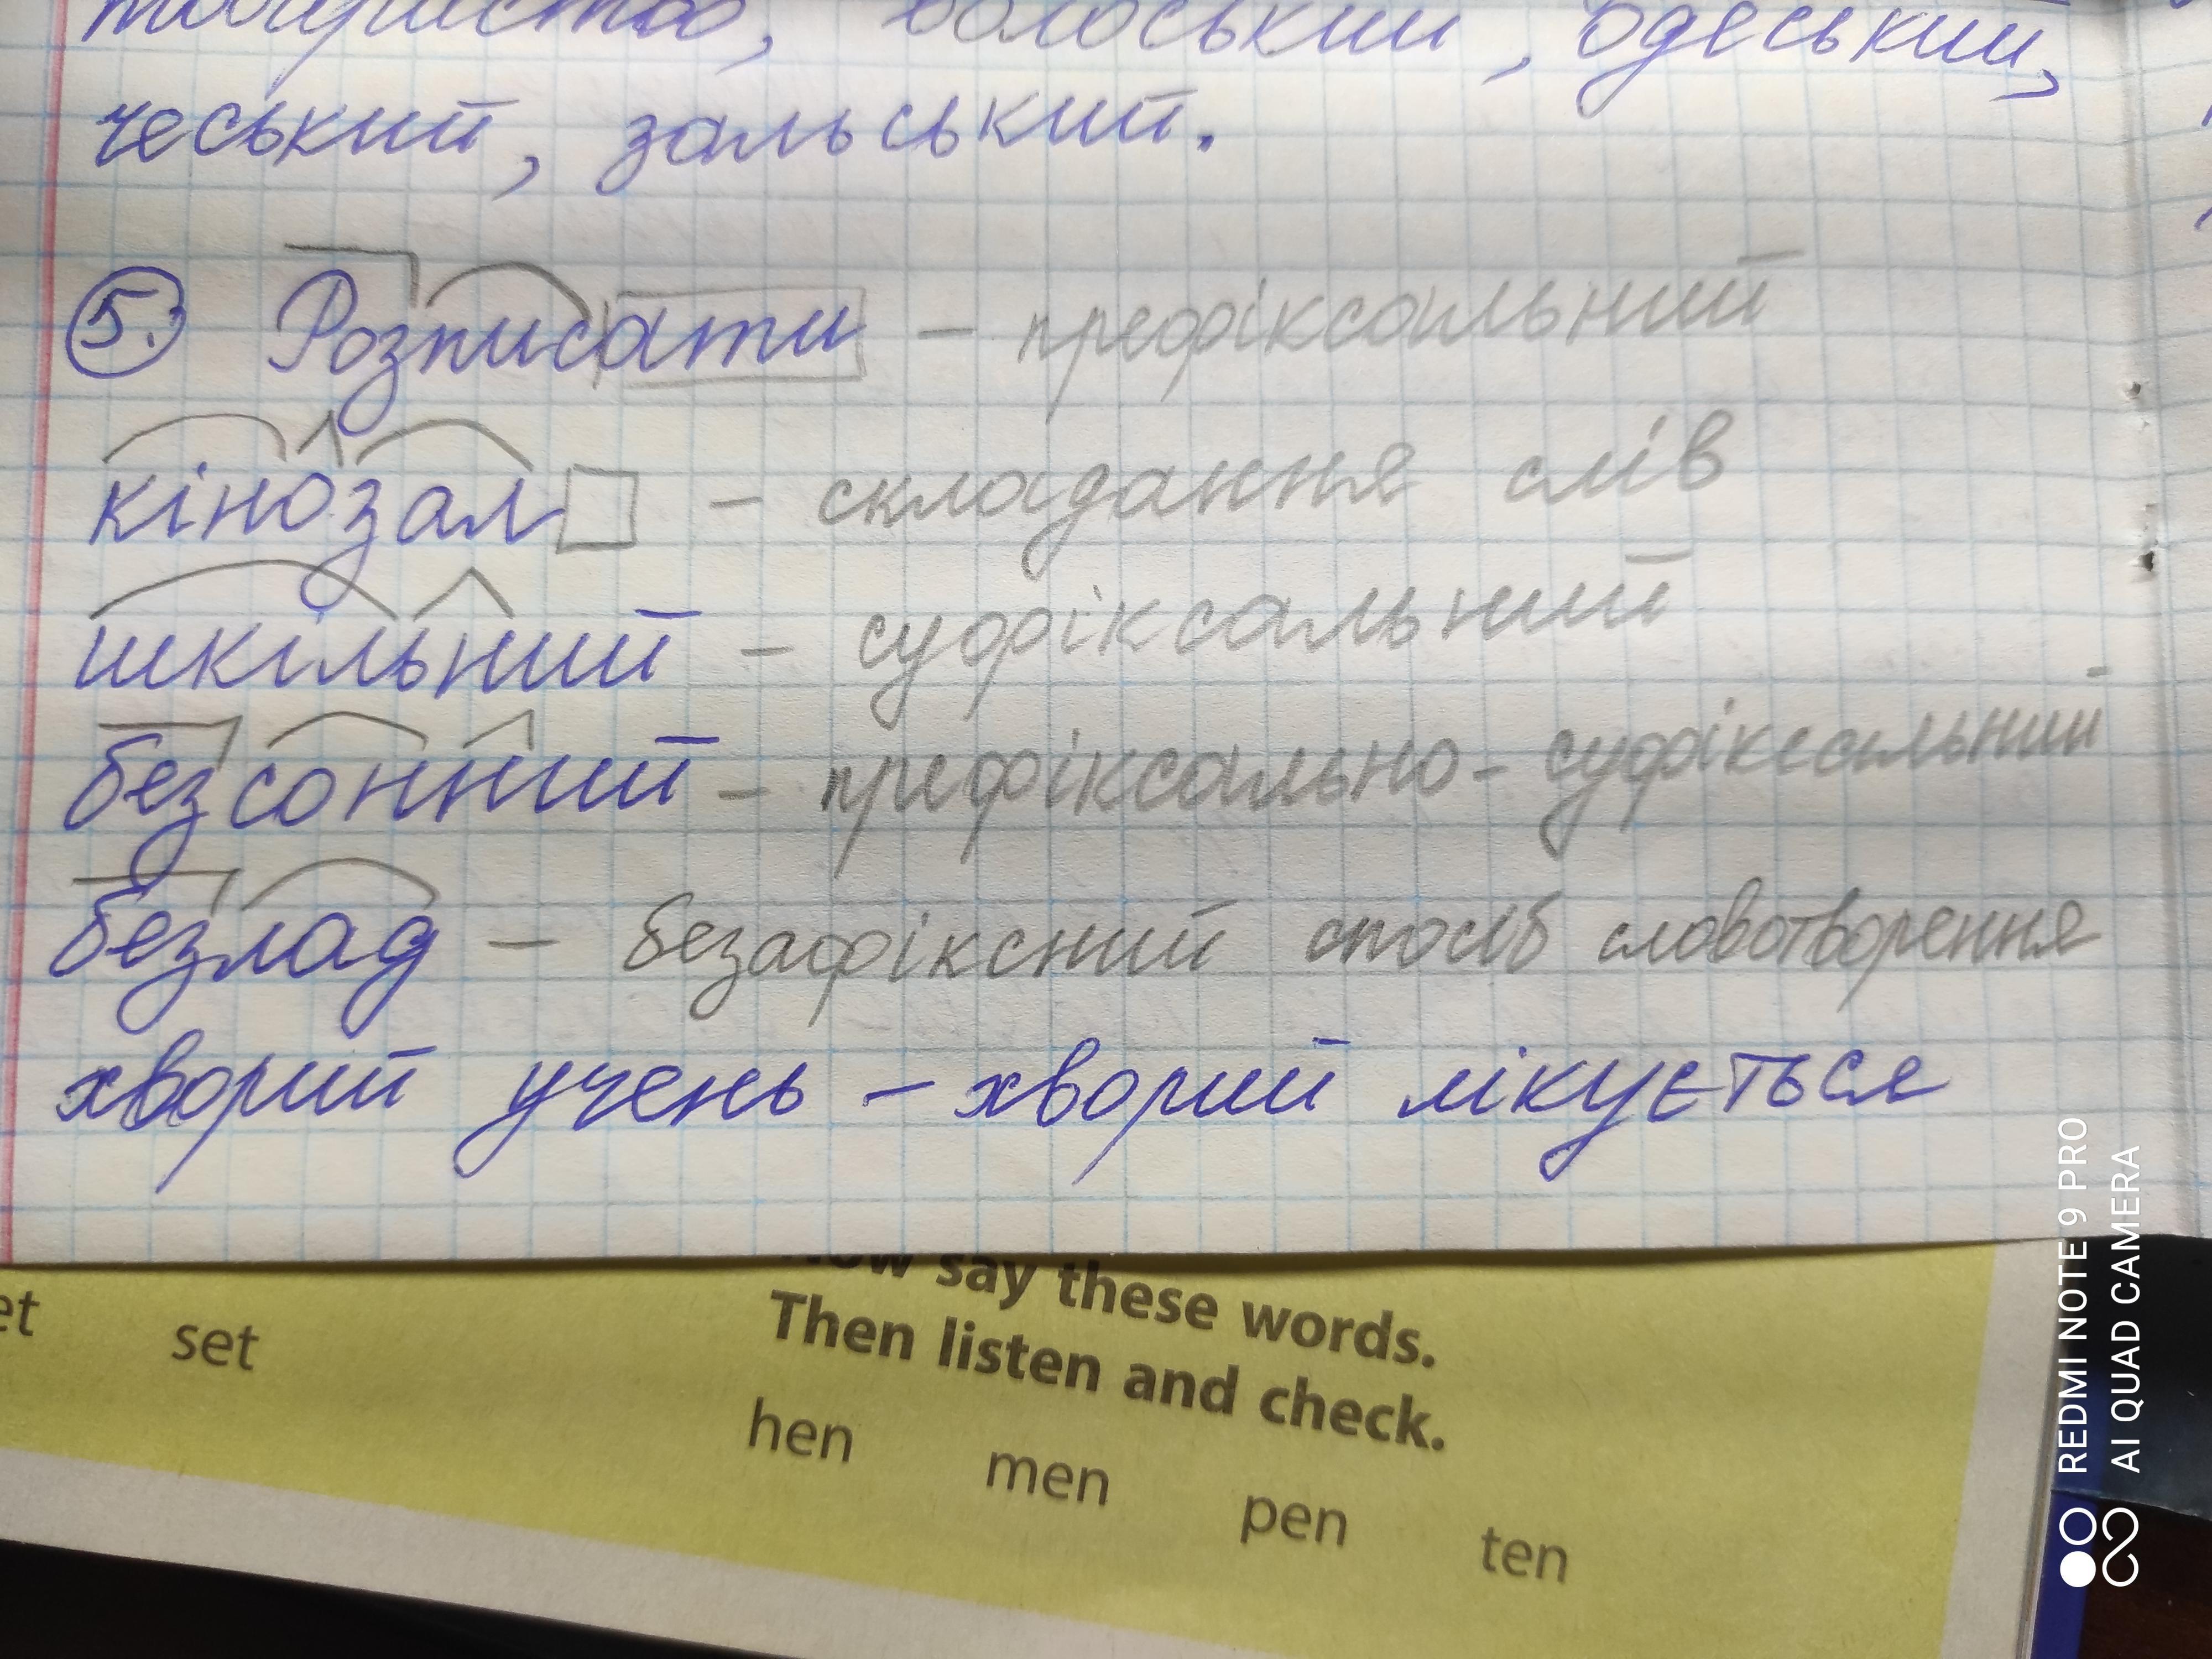 товариство, волоський, одеський,
чеський, зальський.
5. Розписати – префіксальний
кінозал – складання слів
шкільний – суфіксальний
безсонний – префіксально-суфіксальний
безлад – безафіксний спосіб словотворення
хворий учень – хворий лікується
say these words.
Then listen and check.
set
hen men pen ten
REDMI NOTE 9 PRO
AI QUAD CAMERA